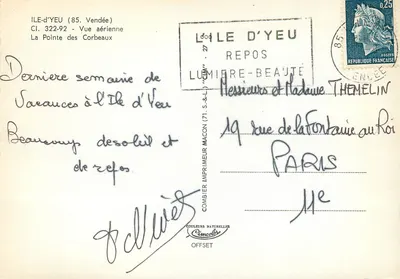 ILE-d'YEU (85. Vendée)
Cl. 322-92 - Vue aérienne
La Pointe des Corbeaux
L'ILE D'YEU
REPOS
LUMIERE-BEAUTÉ
0,25
REPUBLIQUE FRANÇAISE
Dernière semaine de
Vacances à l'Ile d'Yeu
Beaucoup de soleil et
de repos
Messieurs et Madame THEMELIN
19 rue de la Fontaine au Roi
PARIS
11e
COMBIER IMPRIMEUR MACON (71. S.-&-L.)
COULEURS NATURELLES
OFFSET